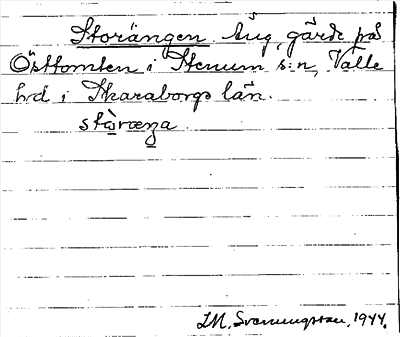 Storängen äng, gärde på
Östtomten i Stenum s:n, Valle
hd i Skaraborgs län.
I.M. Svenungsson, 1944.